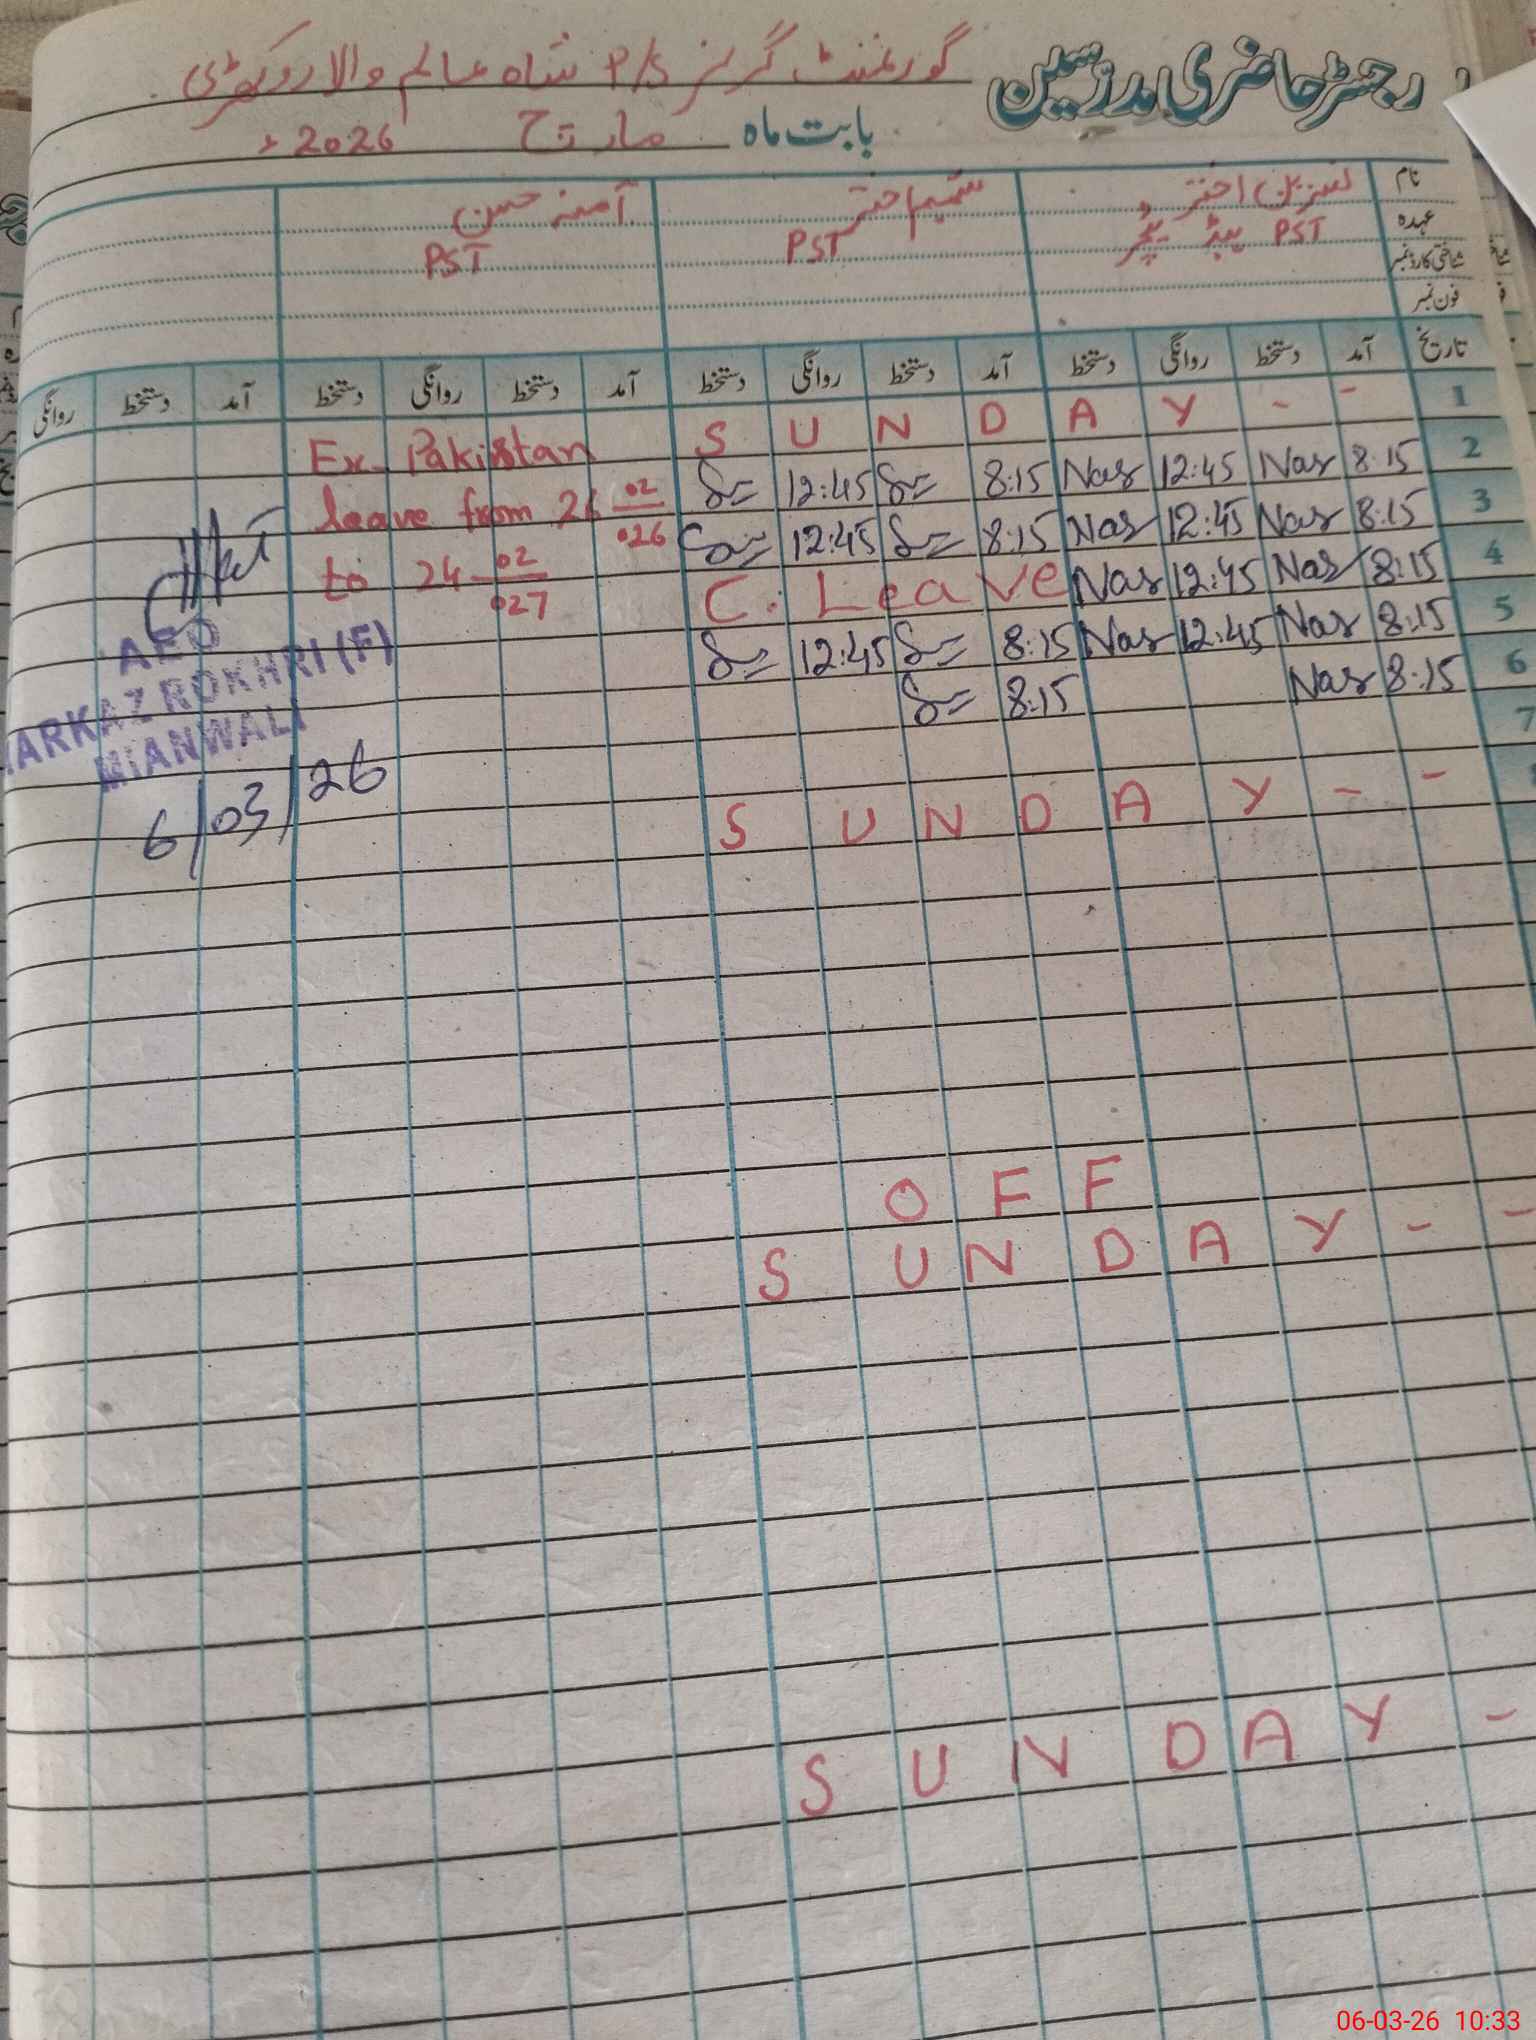 رجسٹر حاضری مدرسین گورنمنٹ گرلز P/S شاہ عالم والا روکھڑی
بابت ماہ مارچ 2026ء
نام نسرین اختر شمیم اختر آمنہ حسن
عہدہ PST ہیڈ ٹیچر PST PST
شناختی کارڈ نمبر
فون نمبر
تاریخ آمد دستخط روانگی دستخط آمد دستخط روانگی دستخط آمد دستخط روانگی دستخط آمد دستخط روانگی
S U N D A Y - - 1
12:45 8:15 Nas 12:45 Nas 8:15 2
12:45 8:15 Nas 12:45 Nas 8:15 3
C. Leave Nas 12:45 Nas 8:15 4
12:45 8:15 Nas 12:45 Nas 8:15 5
8:15 Nas 8:15 6
7
S U N D A Y - -
Ex. Pakistan
leave from 26 02/026
to 24-02/027
AEO
MARKAZ ROKHRI (F)
MIANWALI
6/03/26
O F F
S U N D A Y - -
S U N D A Y -
06-03-26 10:33